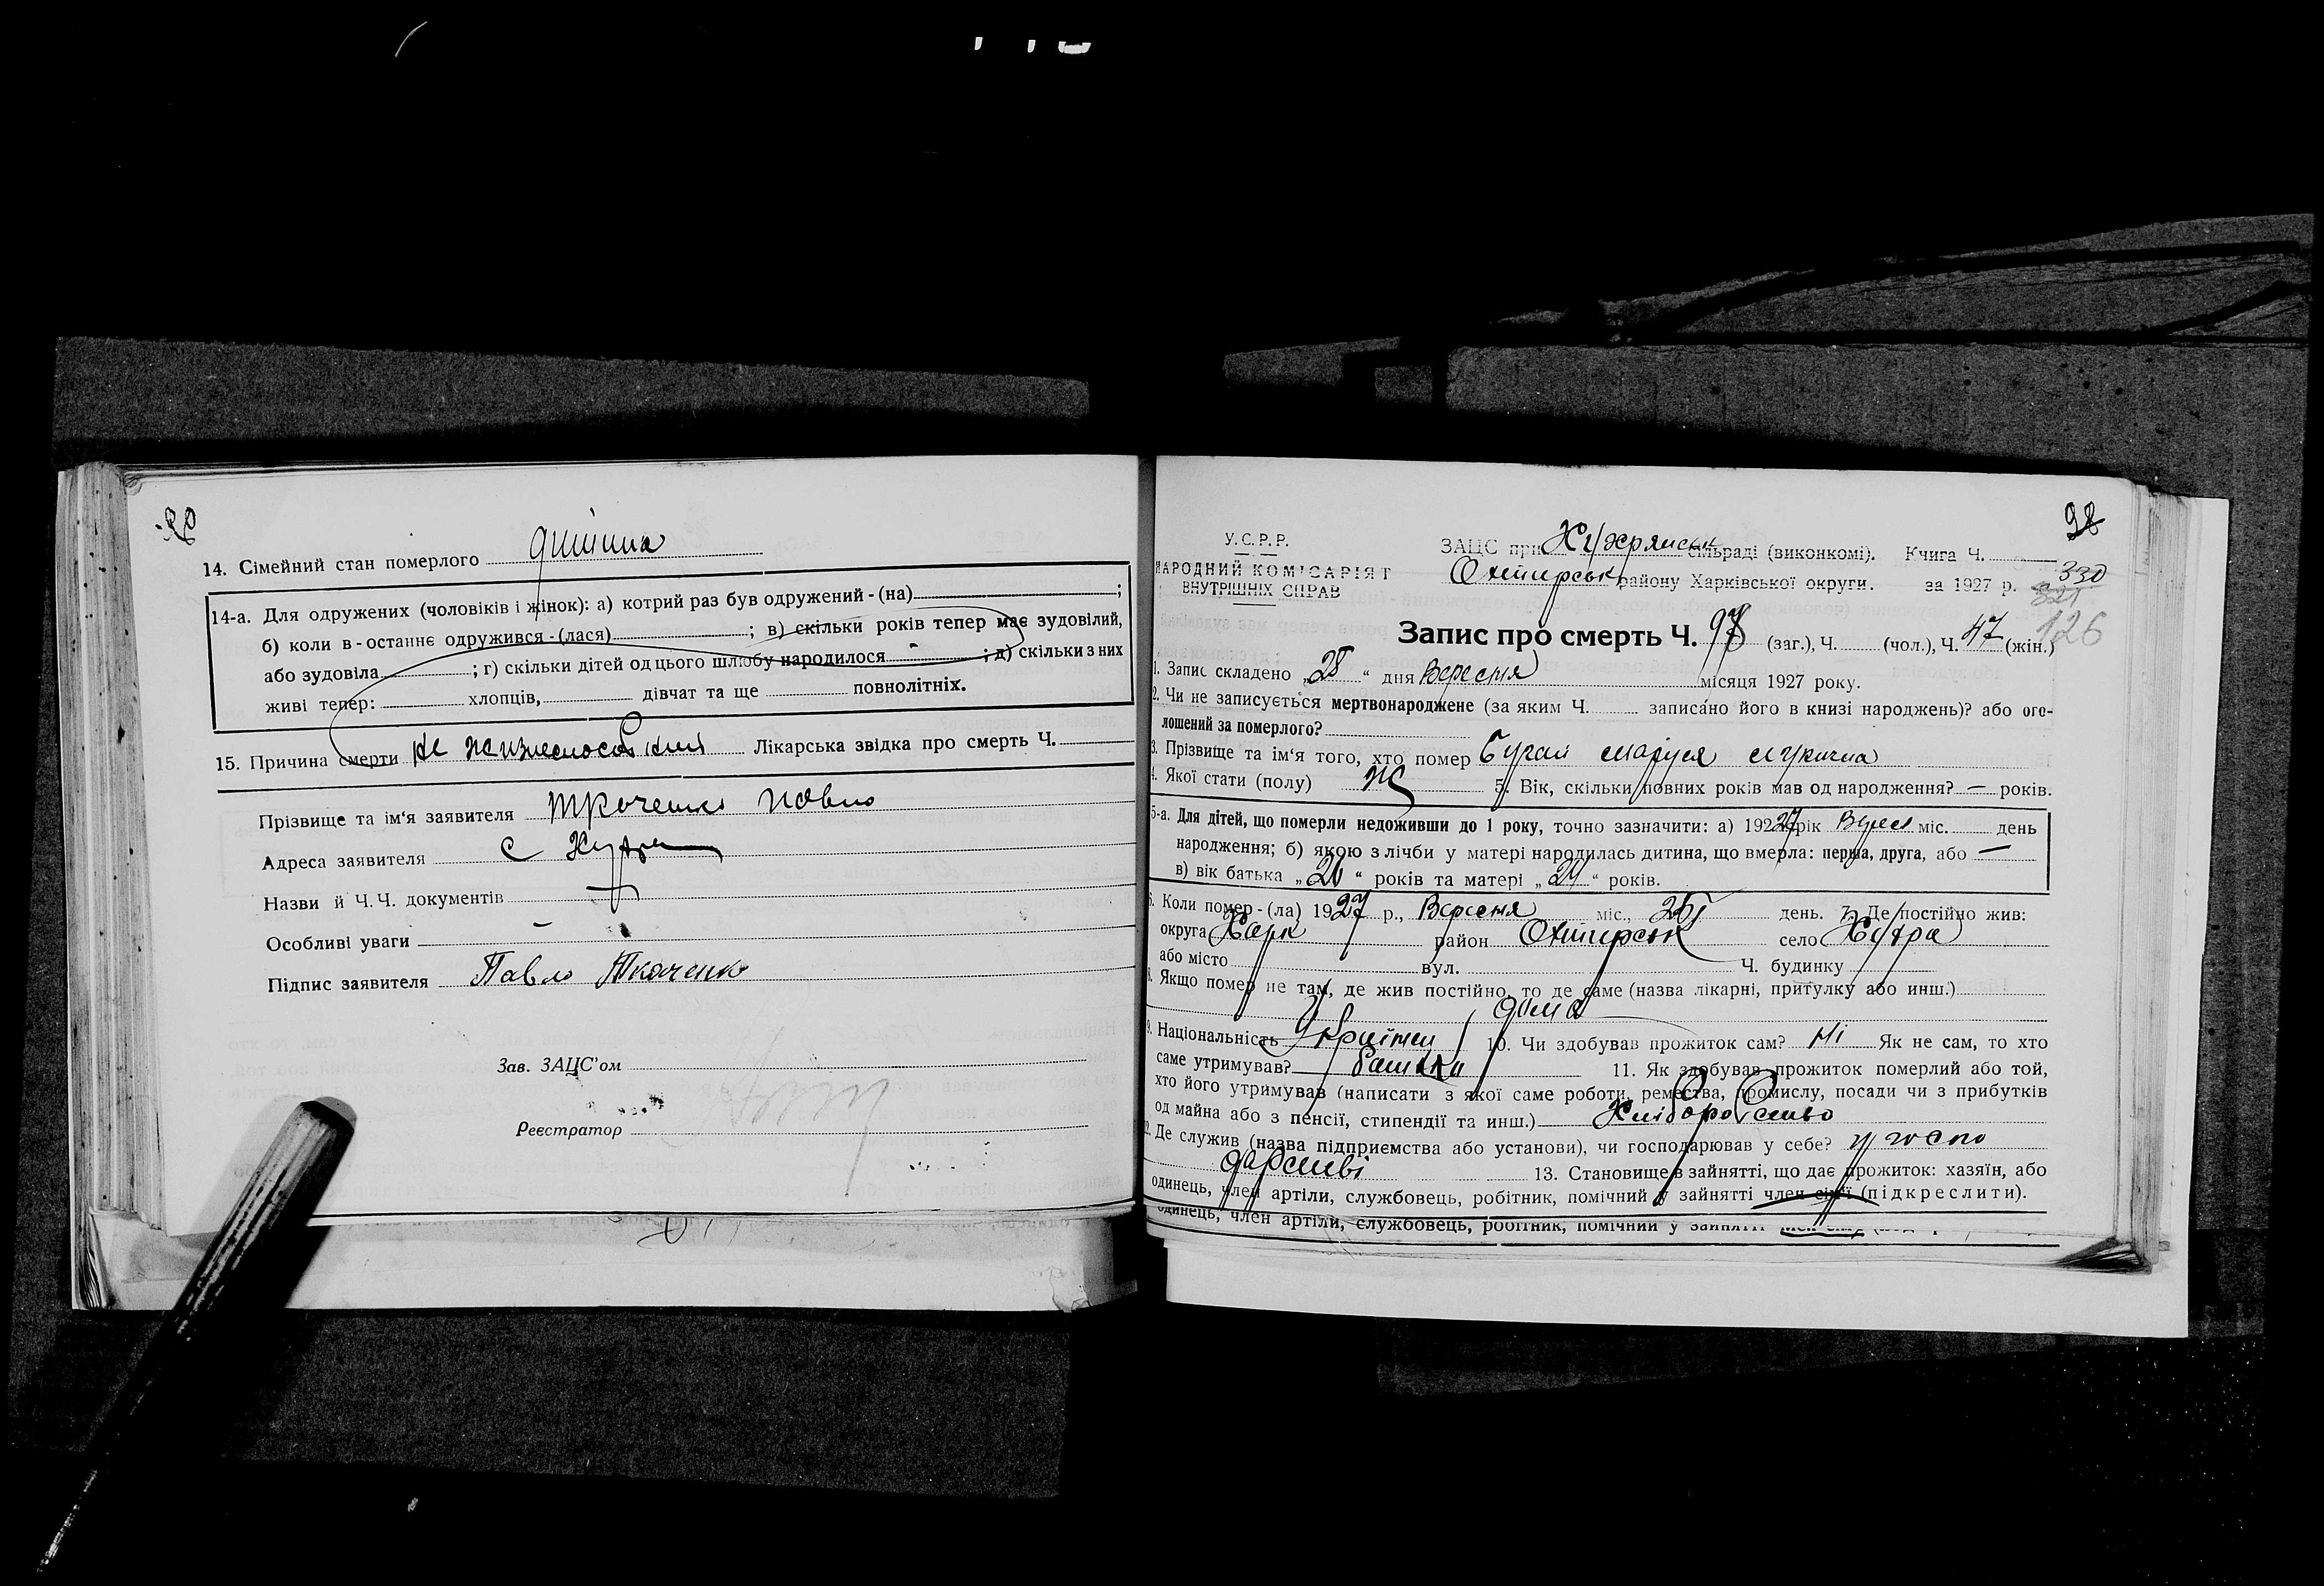 14. Сімейний стан померлого дитина
14-а. Для одружених (чоловіків і жінок): а) котрий раз був одружений - (на) ;
б) коли в-останнє одружився - (лася) ; в) скільки років тепер має зудовілий,
або зудовіла ; г) скільки дітей од цього шлюбу народилося - ; д) скільки з них
живі тепер: хлопців, дівчат та ще повнолітніх.
15. Причина смерти не жизнеспособ Лікарська звідка про смерть Ч.
Прізвище та ім'я заявителя Ткаченко Павло
Адреса заявителя с Хухра
Назви й Ч.Ч. документів
Особливі уваги -
Підпис заявителя Павло Ткаченко
Зав. ЗАЦС'ом
Реєстратор
98
У.С.Р.Р.
НАРОДНИЙ КОМІСАРІЯТ
ВНУТРІШНІХ СПРАВ
ЗАЦС при Хухрянськ сільраді (виконкомі). Книга Ч.
Охтирськ району Харківської округи. за 1927 р.
330
126
Запис про смерть Ч. 98 (заг.), Ч. (чол.), Ч. 47 (жін.)
1. Запис складено „28“ дня Вересня місяця 1927 року.
2. Чи не записується мертвонароджене (за яким Ч. записано його в книзі народжень)? або ого-
лошений за померлого?
3. Прізвище та ім'я того, хто помер Бугай Маруся Лукична
4. Якої стати (полу) Ж 5. Вік, скільки повних років мав од народження? — років.
5-а. Для дітей, що померли недоживши до 1 року, точно зазначити: а) 1927 рік Верес міс. день
народження; б) якою з лічби у матері народилась дитина, що вмерла: перша, друга, або —
в) вік батька „20“ років та матері „21“ років.
6. Коли помер - (ла) 1927 р., Вересня міс., день. 7. Де постійно жив:
округа Харк район Охтирськ село Хухра
або місто вул. Ч. будинку
8. Якщо помер не там, де жив постійно, то де саме (назва лікарні, притулку або инш.)
дома
9. Національність Україн 10. Чи здобував прожиток сам? Ні Як не сам, то хто
саме утримував? батьки 11. Як здобував прожиток померлий або той,
хто його утримував (написати з якої саме роботи, ремества, промислу, посади чи з прибутків
од майна або з пенсії, стипендії та инш.) Хліборобство
12. Де служив (назва підприємства або установи), чи господарював у себе? у госпо
дарстві 13. Становище в зайнятті, що дає прожиток: хазяїн, або
одинець, член артілі, службовець, робітник, помічний у зайнятті член сім'ї (підкреслити).
одинець, член артілі, службовець, робітник, помічний у зайнятті